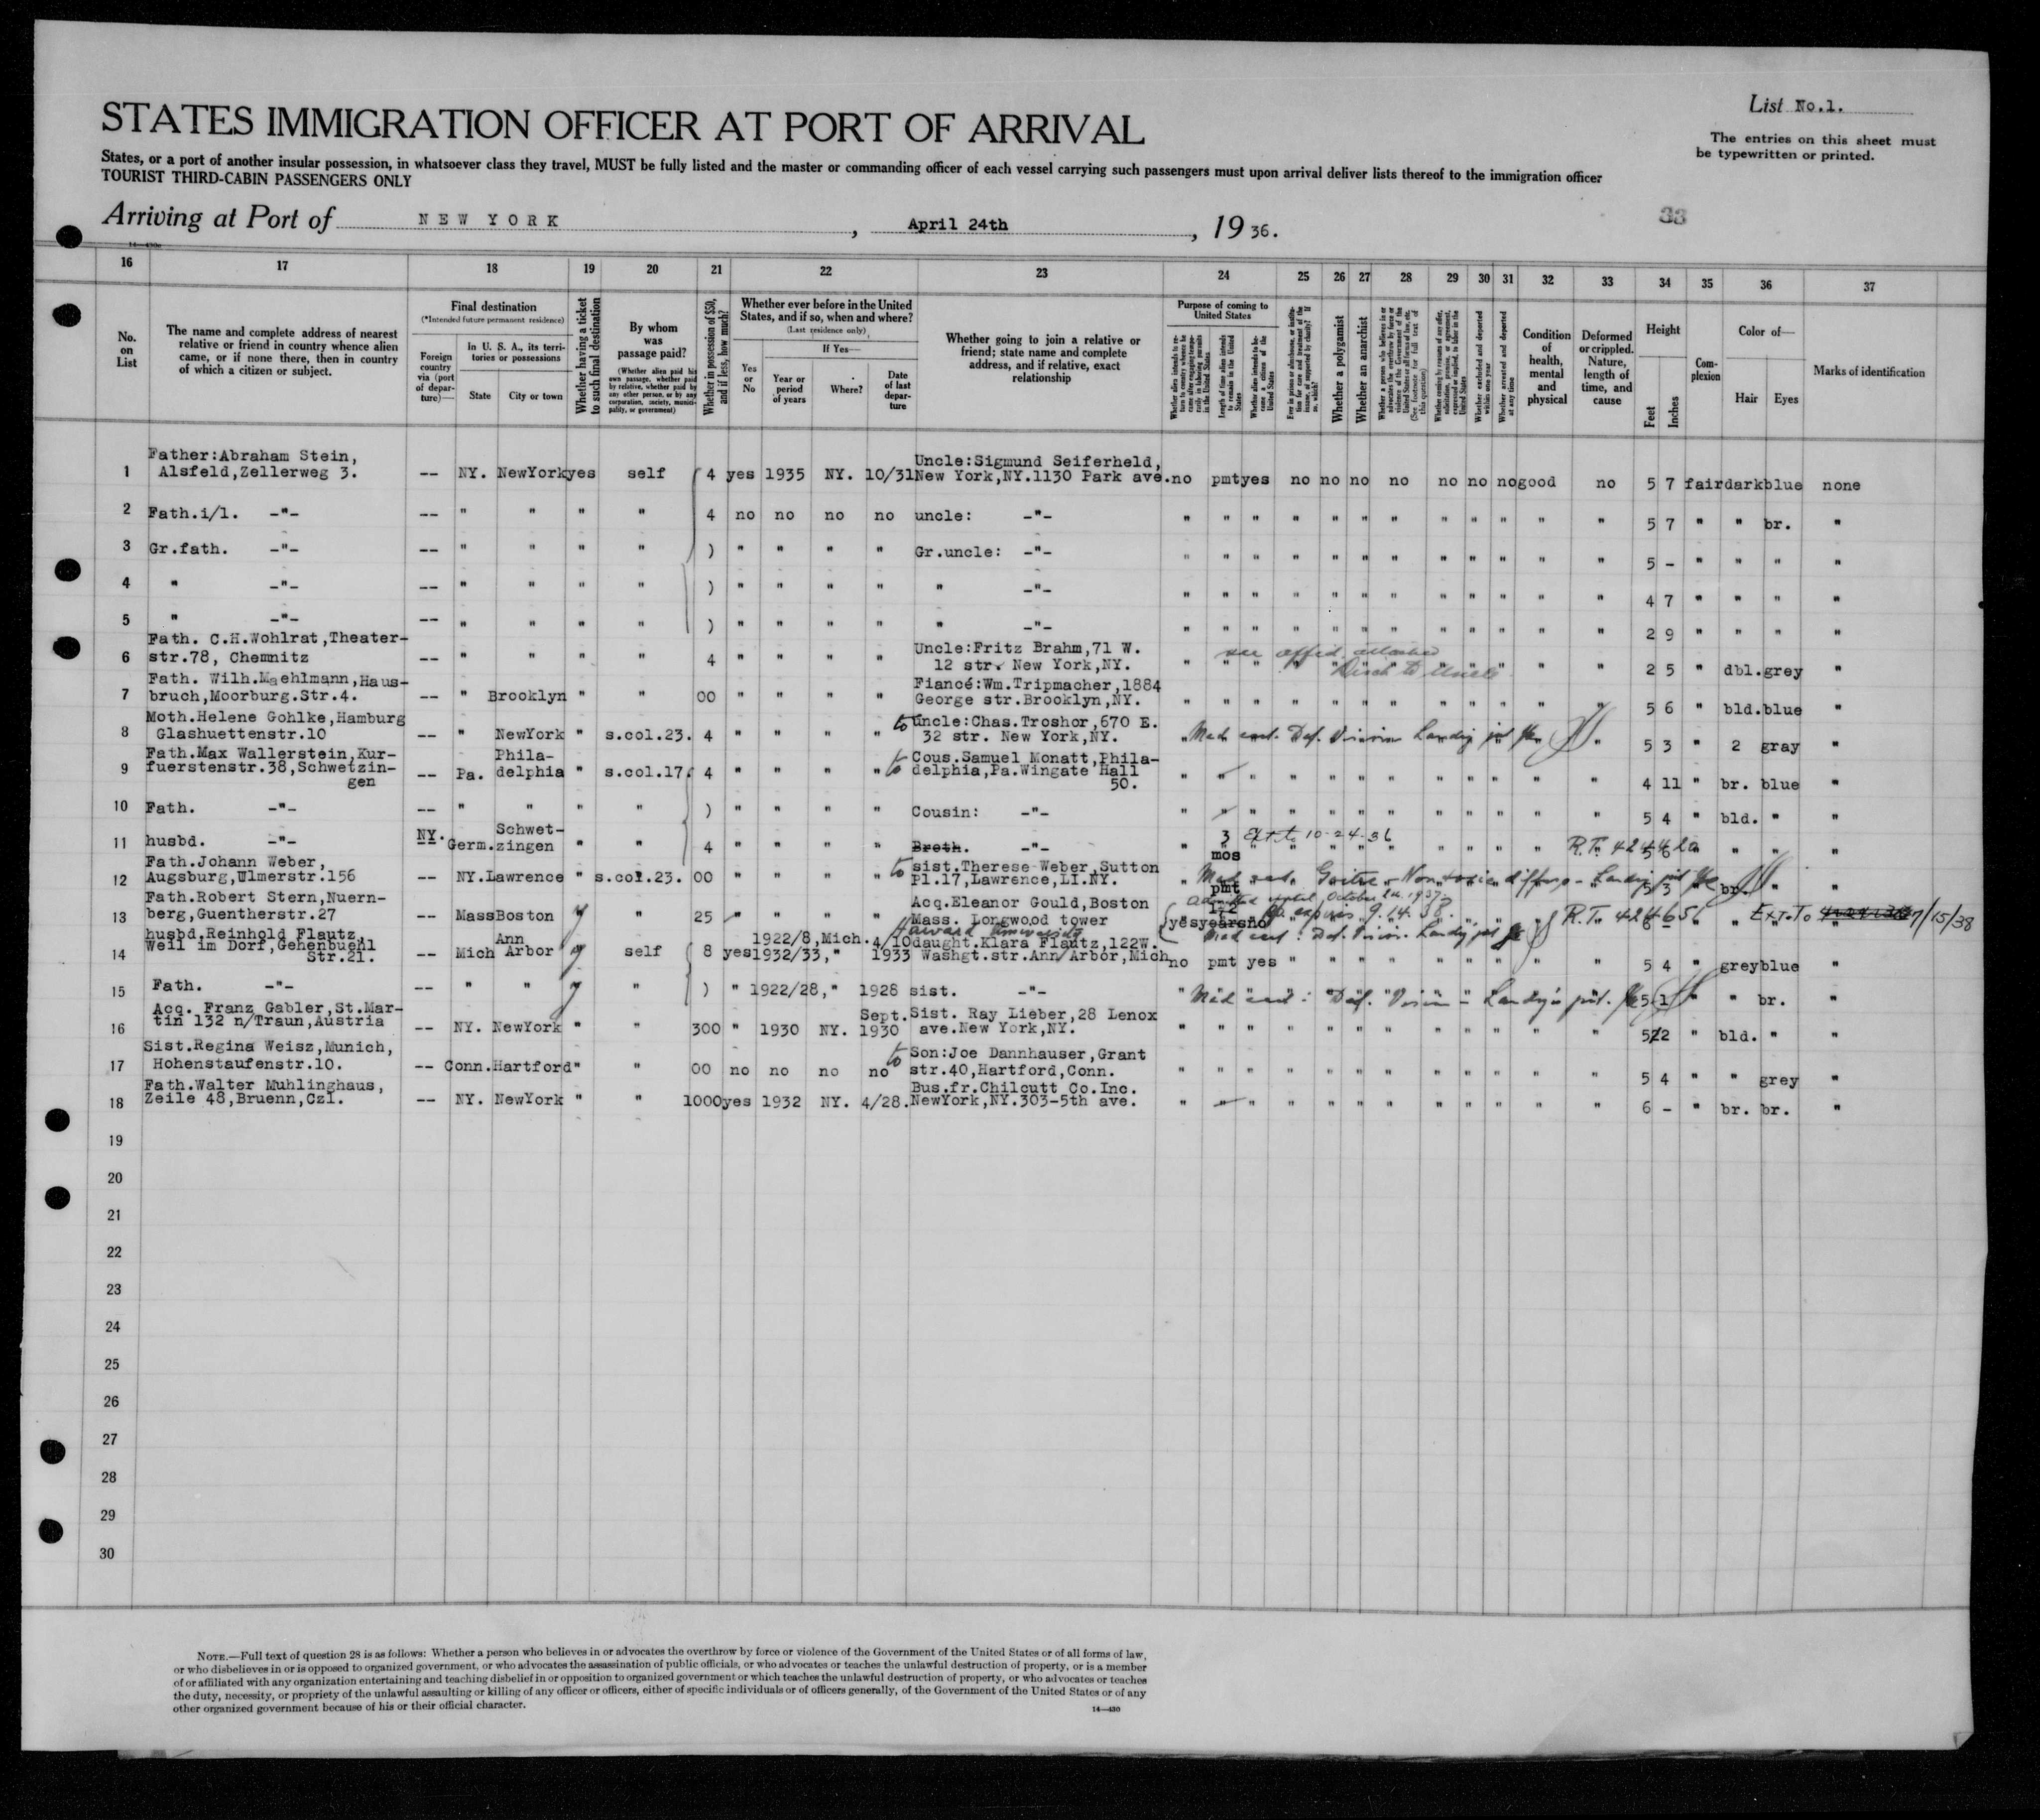 List No.1.
STATES IMMIGRATION OFFICER AT PORT OF ARRIVAL
The entries on this sheet must
be typewritten or printed.
States, or a port of another insular possession, in whatsoever class they travel, MUST be fully listed and the master or commanding officer of each vessel carrying such passengers must upon arrival deliver lists thereof to the immigration officer
TOURIST THIRD-CABIN PASSENGERS ONLY
Arriving at Port of NEW YORK, April 24th, 1936.
33
14—430a
16 17 18 19 20 21 22 23 24 25 26 27 28 29 30 31 32 33 34 35 36 37
No. on List
The name and complete address of nearest relative or friend in country whence alien came, or if none there, then in country of which a citizen or subject.
Final destination
(*Intended future permanent residence)
Foreign country via (port of departure)—
In U. S. A., its territories or possessions
State
City or town
Whether having a ticket to such final destination
By whom was passage paid?
(Whether alien paid his own passage, whether paid by relative, whether paid by any other person, or by any corporation, society, municipality, or government)
Whether in possession of $50, and if less, how much?
Whether ever before in the United States, and if so, when and where?
(Last residence only)
Yes or No
If Yes—
Year or period of years
Where?
Date of last departure
Whether going to join a relative or friend; state name and complete address, and if relative, exact relationship
Purpose of coming to United States
Length of time alien intends to remain in the United States
Whether alien intends to become a citizen of the United States
Whether a polygamist
Whether an anarchist
Whether excluded and deported within one year
Whether arrested and deported at any time
Condition of health, mental and physical
Deformed or crippled. Nature, length of time, and cause
Height
Feet
Inches
Complexion
Color of—
Hair
Eyes
Marks of identification
Father:Abraham Stein,
1 Alsfeld,Zellerweg 3. -- NY. NewYork yes self 4 yes 1935 NY. 10/31 Uncle:Sigmund Seiferheld, New York,NY.1130 Park ave. no pmt yes no no no no no no no good no 5 7 fair dark blue none
2 Fath.i/l. -"- -- " " " " 4 no no no no uncle: -"- " " " " " " " " " " " " 5 7 " " br. "
3 Gr.fath. -"- -- " " " " ) " " " " Gr.uncle: -"- " " " " " " " " " " " " 5 - " " " "
4 " -"- -- " " " " ) " " " " " -"- " " " " " " " " " " " " 4 7 " " " "
5 " -"- -- " " " " ) " " " " " -"- " " " " " " " " " " " " 2 9 " " " "
Fath. C.H.Wohlrat,Theater-
6 str.78, Chemnitz -- " " " " 4 " " " " Uncle:Fritz Brahm,71 W. 12 str. New York,NY. see affid. attached 2 5 " dbl. grey "
Fath. Wilh.Maehlmann,Haus-
7 bruch,Moorburg.Str.4. -- " Brooklyn " " 00 " " " " Fiancé:Wm.Tripmacher,1884 George str.Brooklyn,NY. " " " " " " " " " " " " 5 6 " bld. blue "
Moth.Helene Gohlke,Hamburg
8 Glashuettenstr.10 -- " NewYork " s.col.23. 4 " " " " to Uncle:Chas.Troshor,670 E. 32 str. New York,NY. Med cert. Def. Vision 5 3 " 2 gray "
Fath.Max Wallerstein,Kur-
9 fuerstenstr.38,Schwetzin-gen -- Pa. Phila-delphia " s.col.17. 4 " " " " to Cous.Samuel Monatt,Phila-delphia,Pa.Wingate Hall 50. " " " " " " " " " " " " 4 11 " br. blue "
10 Fath. -"- -- " " " " ) " " " " Cousin: -"- " " " " " " " " " " " " 5 4 " bld. " "
11 husbd. -"- NY. -- Germ. Schwet-zingen " " 4 " " " " Breth. -"- " 3 mos Ext. to 10-24-36 R.T. 5 6 " " " "
Fath.Johann Weber,
12 Augsburg,Ulmerstr.156 -- NY. Lawrence " s.col.23. 00 " " " " to sist.Therese Weber,Sutton Pl.17,Lawrence,LI.NY. " pmt Med cert. Goitre - Non toxic 5 3 " br. " "
Fath.Robert Stern,Nuern-
13 berg,Guentherstr.27 -- Mass Boston y " 25 " " " " Acq.Eleanor Gould,Boston Mass. Longwood tower yes years no Admitted until October 24, 1937 expires 9.14.38. R.T. 424656 6 - " Ext. To 7/15/38
husbd.Reinhold Flautz,
14 Weil im Dorf,Gehenbuehl Str.21. -- Mich Ann Arbor y self 8 yes 1922/8,Mich. 1932/33," 4/10 1933 daught.Klara Flautz,122W. Washgt.str.Ann Arbor,Mich no pmt yes " Med cert: Def. Vision 5 4 " grey blue "
15 Fath. -"- -- " " y " ) " 1922/28," 1928 sist. -"- " Med cert: Def. Vision 5 1 " " br. "
Acq. Franz Gabler,St.Mar-
16 tin 132 n/Traun,Austria -- NY. NewYork " " 300 " 1930 NY. Sept. 1930 Sist. Ray Lieber,28 Lenox ave.New York,NY. " " " " " " " " " " " " 5 2 " bld. " "
Sist.Regina Weisz,Munich,
17 Hohenstaufenstr.10. -- Conn. Hartford " " 00 no no no no to Son:Joe Dannhauser,Grant str.40,Hartford,Conn. " " " " " " " " " " " " 5 4 " " grey "
Fath.Walter Muhlinghaus,
18 Zeile 48,Bruenn,Czl. -- NY. NewYork " " 1000 yes 1932 NY. 4/28. Bus.fr.Chilcutt Co.Inc. NewYork,NY.303-5th ave. " " " " " " " " " " " " 6 - " br. br. "
19
20
21
22
23
24
25
26
27
28
29
30
NOTE.—Full text of question 28 is as follows: Whether a person who believes in or advocates the overthrow by force or violence of the Government of the United States or of all forms of law,
or who disbelieves in or is opposed to organized government, or who advocates the assassination of public officials, or who advocates or teaches the unlawful destruction of property, or is a member
of or affiliated with any organization entertaining and teaching disbelief in or opposition to organized government or which teaches the unlawful destruction of property, or who advocates or teaches
the duty, necessity, or propriety of the unlawful assaulting or killing of any officer or officers, either of specific individuals or of officers generally, of the Government of the United States or of any
other organized government because of his or their official character.
14—430